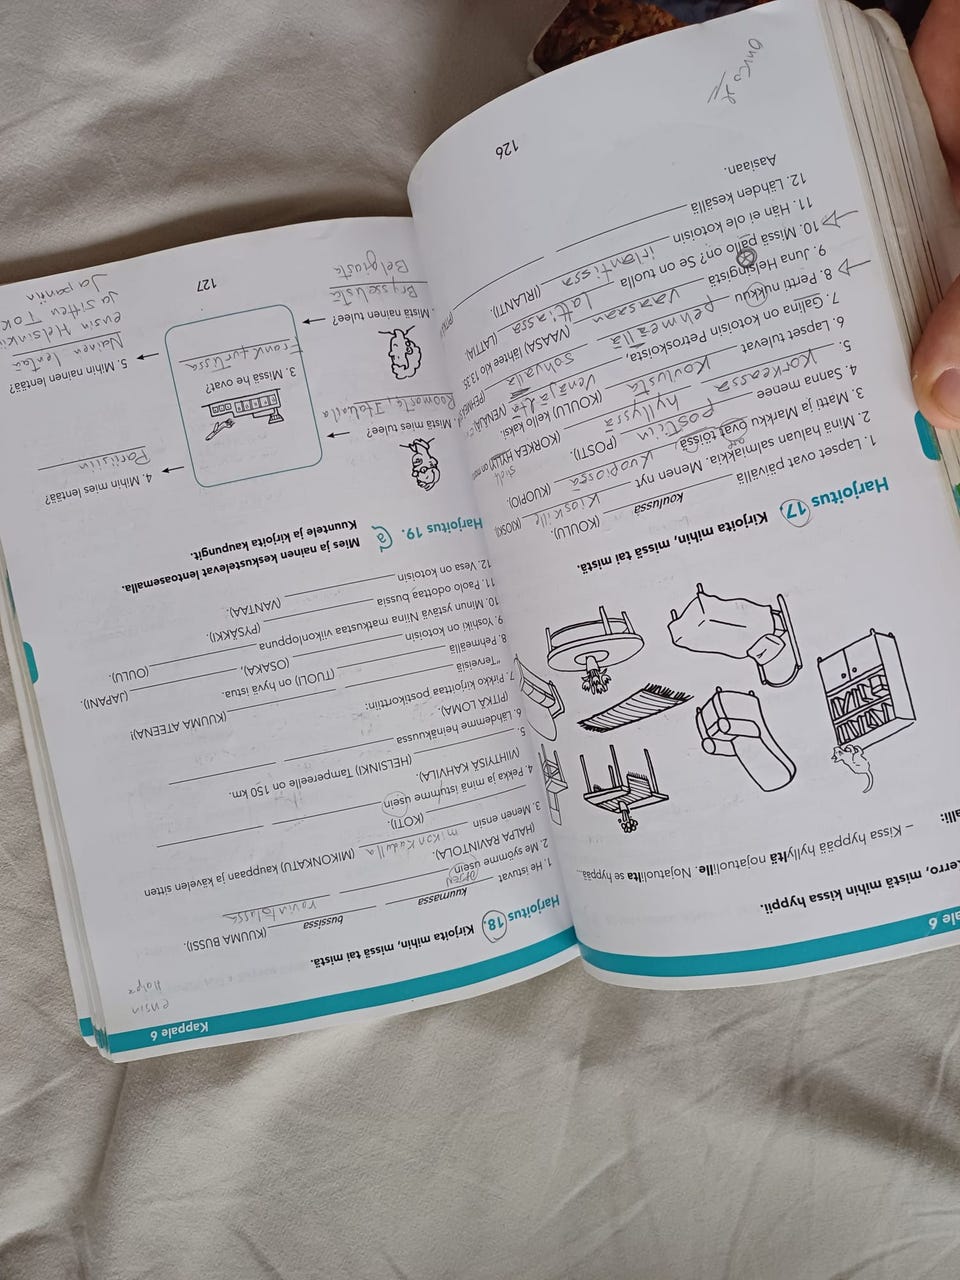 Kappale 6
erro, mistä mihin kissa hyppii.
alli:
– Kissa hyppää hyllyltä nojatuolille. Nojatuolilta se hyppää...
Harjoitus 17. Kirjoita mihin, missä tai mistä.
1. Lapset ovat päivällä koulussa (KOULU).
2. Minä haluan salmiakkia. Menen nyt Kioskille (KIOSKI).
3. Matti ja Markku ovat töissä Kuopiossa (KUOPIO).
4. Sanna menee Postiin (POSTI).
5. Korkeassa hyllyssä (KORKEA HYLLY) on
6. Lapset tulevat Koulusta (KOULU) kello kaksi.
7. Galina on kotoisin Petroskoista, Venäjältä (VENÄJÄ).
8. Pertti nukkuu pehmeällä sohvalla
9. Juna Helsingistä Vaasaan (VAASA) lähtee klo 13.35.
10. Missä pallo on? Se on tuolla lattiassa (LATTIA).
11. Hän ei ole kotoisin irlantissa (IRLANTI).
12. Lähden kesällä
Aasiaan.
126
Kappale 6
ensin
Harjoitus 18. Kirjoita mihin, missä tai mistä.
1. He istuvat kuumassa bussissa (KUUMA BUSSI).
2. Me syömme usein ravintolassa
(HALPA RAVINTOLA).
3. Menen ensin mikonkadulla (MIKONKATU) kauppaan ja kävelen sitten
(KOTI).
4. Pekka ja minä istumme usein
(VIIHTYISÄ KAHVILA).
5. (HELSINKI) Tampereelle on 150 km.
6. Lähdemme heinäkuussa
(PITKÄ LOMA).
7. Pirkko kirjoittaa postikorttiin:
"Terveisiä (KUUMA ATEENA)!
8. Pehmeällä (TUOLI) on hyvä istua.
9. Yoshiki on kotoisin (OSAKA), (JAPANI).
10. Minun ystävä Niina matkustaa viikonloppuna (OULU).
11. Paolo odottaa bussia (PYSÄKKI).
12. Vesa on kotoisin (VANTAA).
Harjoitus 19. Mies ja nainen keskustelevat lentoasemalla.
Kuuntele ja kirjoita kaupungit.
Mistä mies tulee?
Roomasta, Italiala
Mistä nainen tulee?
Brysselistä
Belgiasta
3. Missä he ovat?
Frankfurtissa
4. Mihin mies lentää?
Pariisiin
5. Mihin nainen lentää?
Nainen lentää
ensin Helsinkii
ja sitten Tok
Japaniin
127